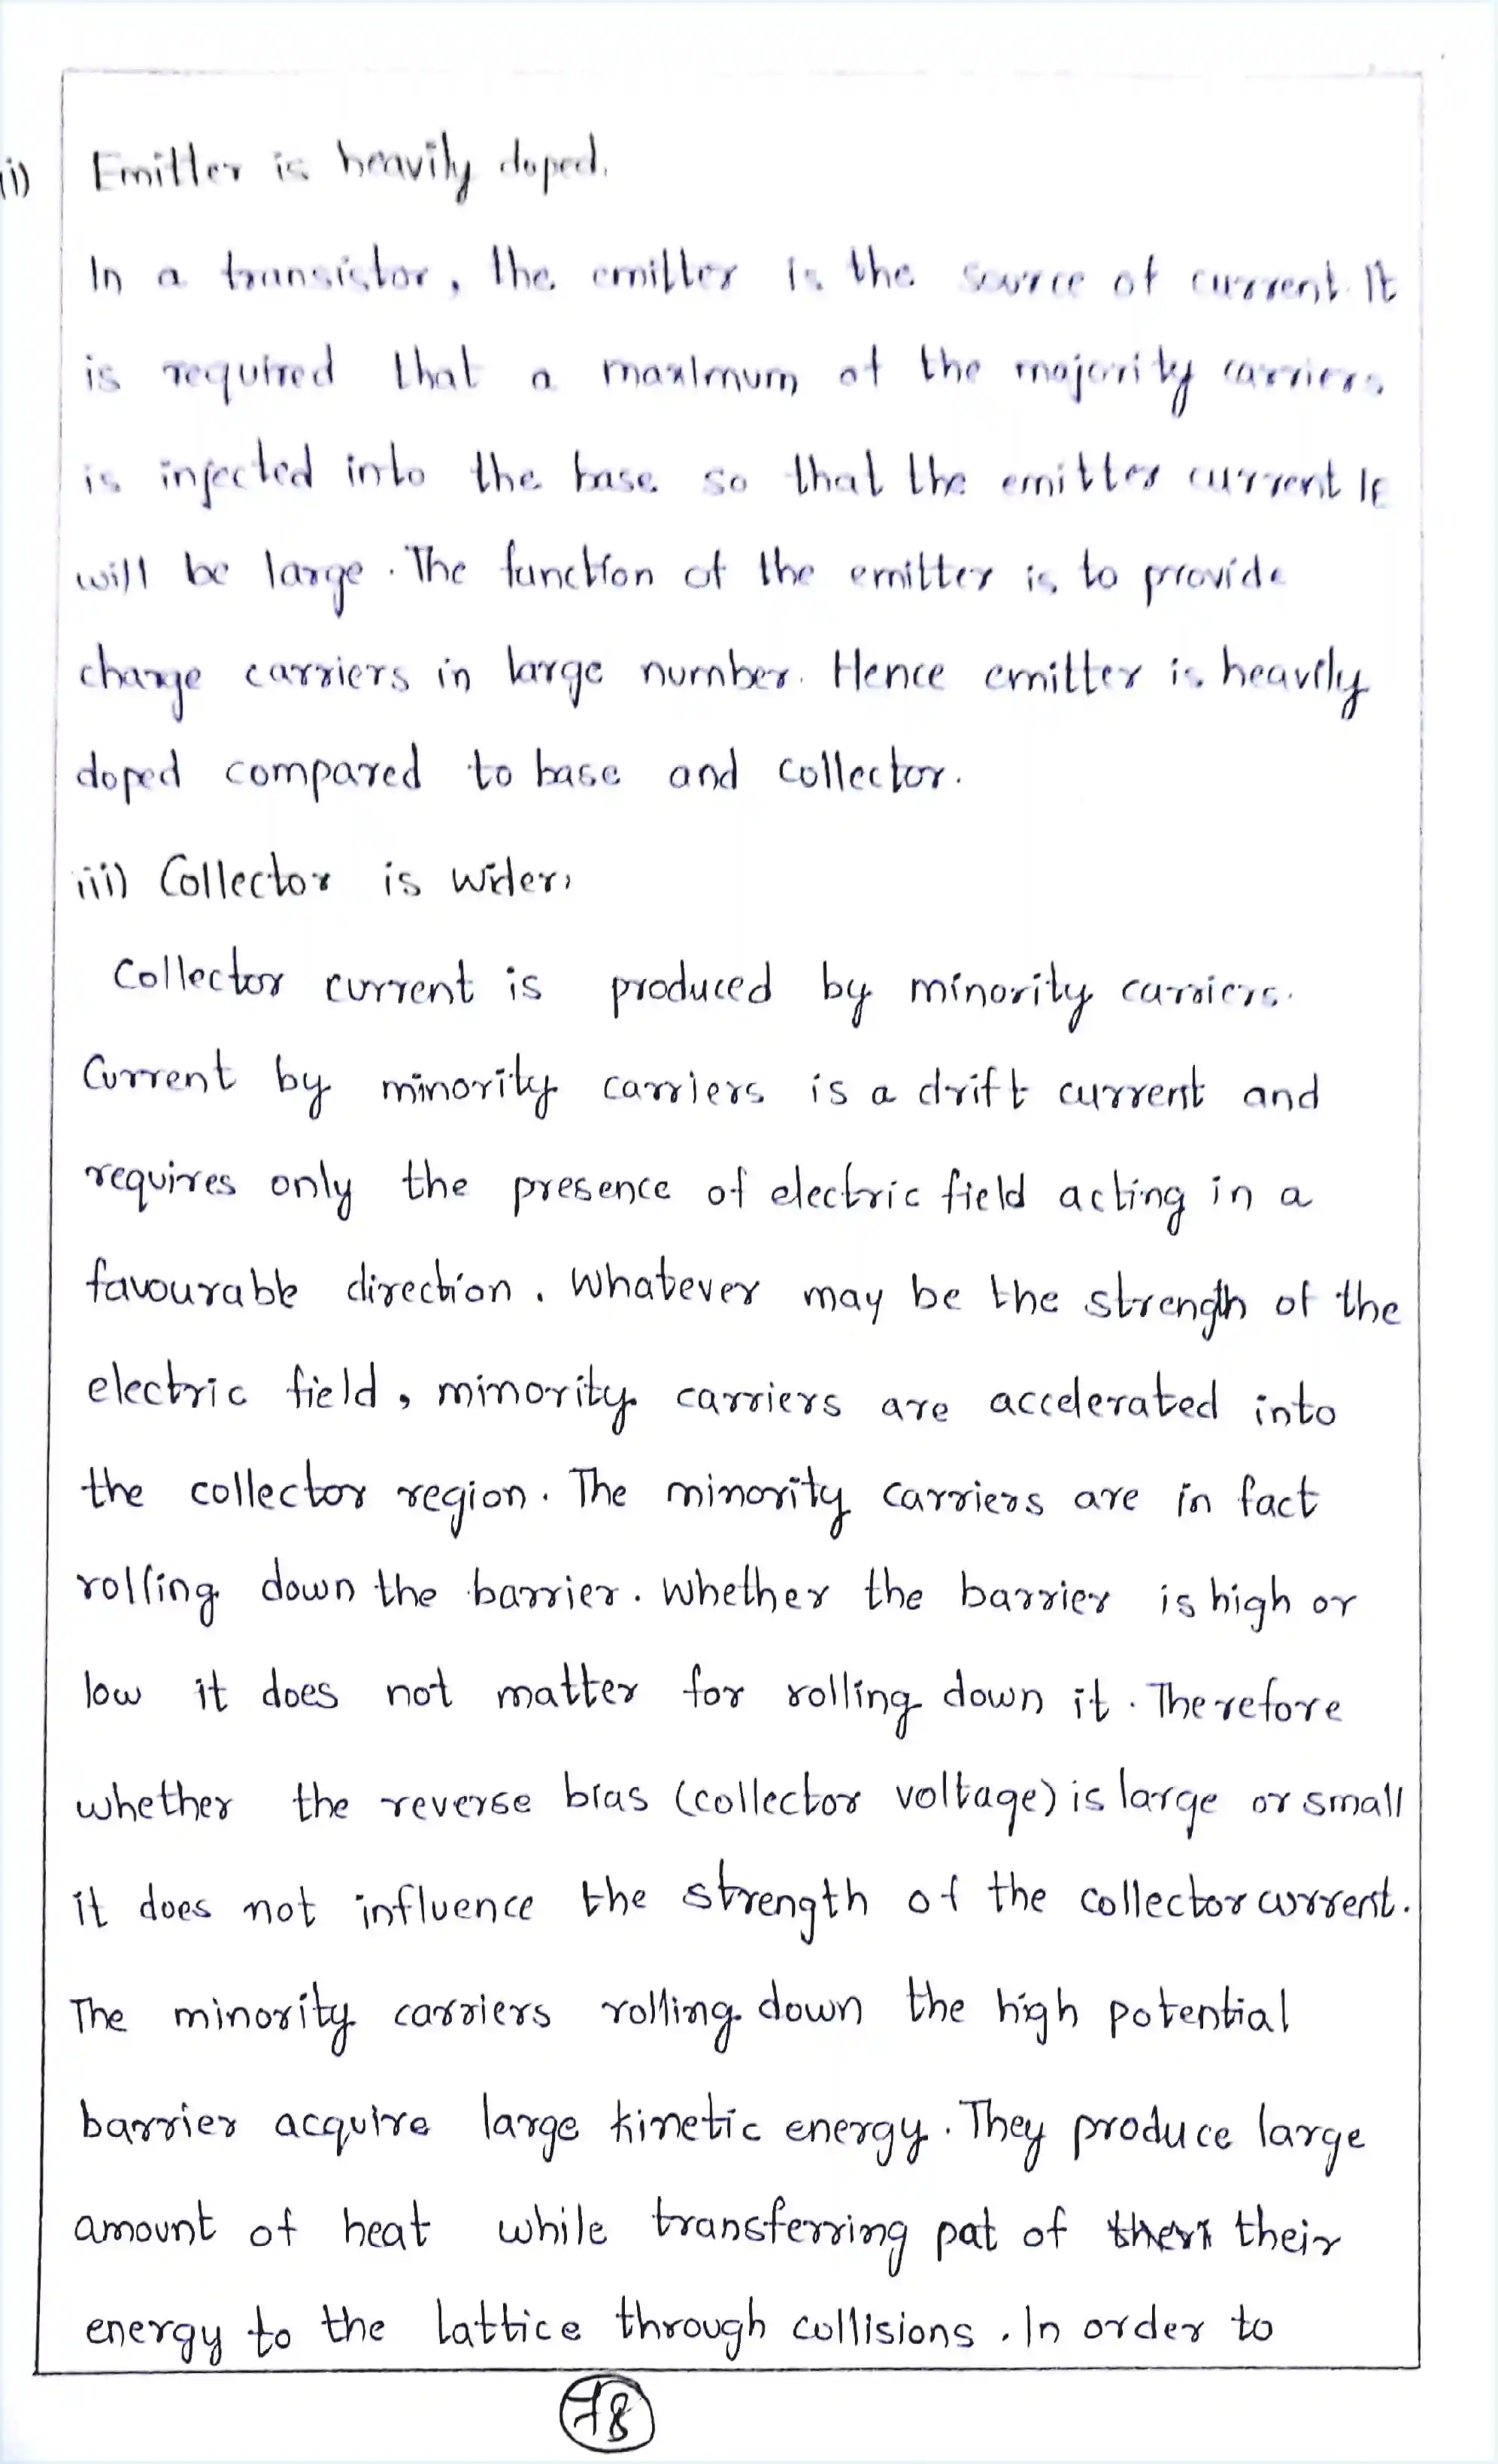 i) Emitter is heavily doped.
In a transistor, the emitter is the source of current. It
is required that a maximum of the majority carriers
is injected into the base so that the emitter current IE
will be large. The function of the emitter is to provide
charge carriers in large number. Hence emitter is heavily
doped compared to base and collector.
iii) Collector is wider.
Collector current is produced by minority carriers.
Current by minority carriers is a drift current and
requires only the presence of electric field acting in a
favourable direction. Whatever may be the strength of the
electric field, minority carriers are accelerated into
the collector region. The minority carriers are in fact
rolling down the barrier. Whether the barrier is high or
low it does not matter for rolling down it. Therefore
whether the reverse bias (collector voltage) is large or small
it does not influence the strength of the collector current.
The minority carriers rolling down the high potential
barrier acquire large kinetic energy. They produce large
amount of heat while transferring pat of their
energy to the lattice through collisions. In order to
78